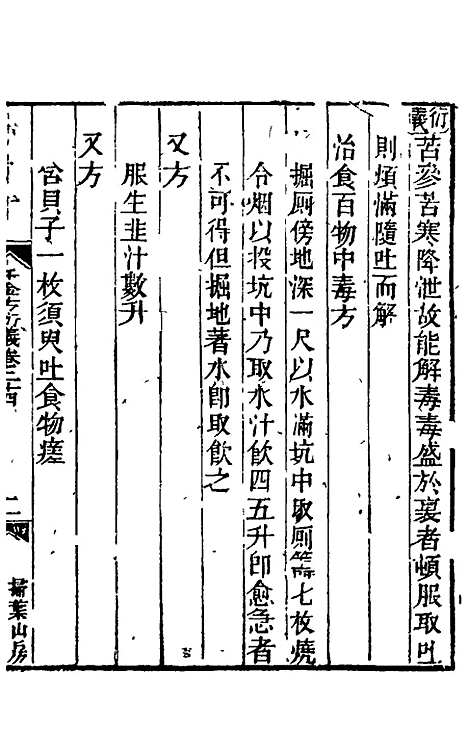 衍義苦參苦寒降泄故能解毒毒盛於裏者頓服取吐
則煩滿隨吐而解
治食百物中毒方
掘厠傍地深一尺以水滿坑中取厠籌七枚燒
令烟以投坑中乃取水汁飲四五升即愈急者
不可得但掘地著水即取飲之
又方
服生韭汁數升
又方
含貝子一枚須臾吐食物瘥
千金方衍義卷二十四
掃葉山房